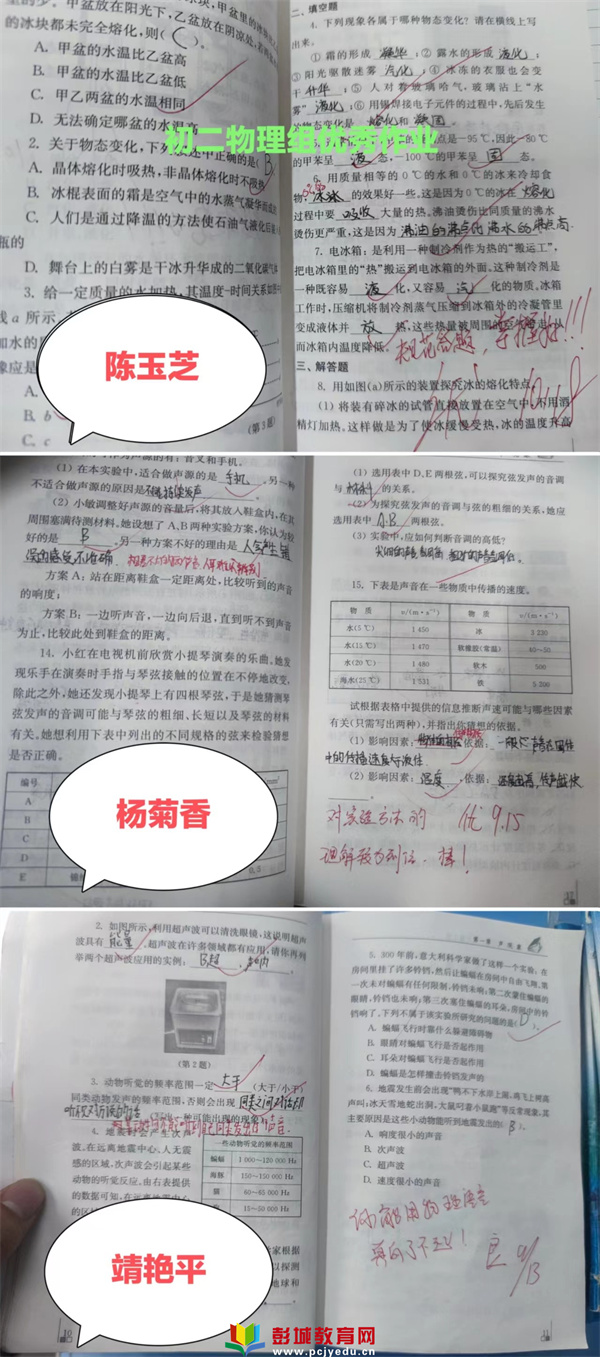 初二物理组优秀作业
的冰块都未完全熔化,则(
A. 甲盆的水温比乙盆高
B. 甲盆的水温比乙盆低
C. 甲乙两盆的水温相同
D. 无法确定哪盆的水温
2. 关于物态变化,下列
中正确的是(B
A. 晶体熔化时吸热,非晶体熔化时不吸热
B. 冰棍表面的霜是空气中的水蒸气凝华而成的
C. 人们是通过降温的方法使石油气液化后
瓶的
D. 舞台上的白雾是干冰升华成的二氧化碳气体
3. 给一定质量的水加热,其温度-时间关系如图中
线a所示.
B. b
C. c
(第3题)
陈玉芝
二、填空题
4. 下列现象各属于哪种物态变化?请在横线上写
出来。
①霜的形成 凝华 ;②露水的形成 液化 ;
③阳光驱散迷雾 汽化 ;④冰冻的衣服也会变
干 升华 ;⑤人对着玻璃哈气,玻璃沾上“水
雾” 液化 ;⑥用锡焊接电子元件的过程中,先后发生
的物态变化是 熔化和凝固
点是-95℃,因此-80℃
的甲苯呈 液 态,-100℃的甲苯呈 固 态。
6. 用质量相等的0℃的水和0℃的冰来冷却食
物, 冰 的效果好一些。这是因为0℃的冰在 熔化
过程中要 吸收 大量的热。沸油烫伤比同质量的沸水
烫伤更严重,这是因为 沸油的沸点比沸水的沸点高
7. 电冰箱:是利用一种制冷剂作为热的“搬运工”,
把电冰箱里的“热”搬运到电冰箱的外面。这种制冷剂是
一种既容易 液 化、又容易 汽 化的物质。冰箱
工作时,压缩机将制冷剂蒸气压缩到冰箱外的冷凝管里
变成液体并 放 热,这些热量被周围的空气带走,从
而冰箱内温度降低。
规范答题,掌握好!!!
三、解答题
8. 用如图(a)所示的装置探究冰的熔化特点。
(1) 将装有碎冰的试管直接放置在空气中,不用酒
精灯加热。这样做是为了使冰缓慢受热,冰的温度升高
作为声源的有:音叉和手机。
(1) 在本实验中,适合做声源的是 手机 ,另一种
不适合做声源的原因是 不能持续发声
(2) 小敏调整好声源的音量后,将其放入鞋盒内,在其
周围塞满待测材料。她设想了A、B两种实验方案,你认为较
好的是 B ,另一种方案不好的理由是
方案A:站在距离鞋盒一定距离处,比较听到的声音
的响度;
方案B:一边听声音,一边向后退,直到听不到声音
为止,比较此处到鞋盒的距离。
14. 小红在电视机前欣赏小提琴演奏的乐曲。她发
现乐手在演奏时手指与琴弦接触的位置在不停地改变,
除此之外,她还发现小提琴上有四根琴弦,于是她猜测琴
弦发声的音调可能与琴弦的粗细、长短以及琴弦的材料
有关。她想利用下表中列出的不同规格的弦来检验猜想
是否正确。
编号
A
B
C
D
E
杨菊香
(1) 选用表中D、E两根弦,可以探究弦发声的音调
与 材料 的关系。
(2) 为探究弦发声的音调与弦的粗细的关系,她应
选用表中 A、B 两根弦。
(3) 实验中,应如何判断音调的高低?
15. 下表是声音在一些物质中传播的速度。
物 质 v/(m·s⁻¹) 物 质 v/(m·s⁻¹)
水(5℃) 1 450 冰 3 230
水(15℃) 1 470 软橡胶(常温) 40~50
水(20℃) 1 480 软木 500
海水(25℃) 1 531 铁 5 200
试根据表格中提供的信息推断声速可能与哪些因素
有关(只需写出两种),并指出你猜想的依据。
(1) 影响因素:
依据: 一般心声音在固体
中的传播速度大于液体
(2) 影响因素: 温度 ,依据: 温度越高,传声越快
对实验方法的
理解较为到位,棒!
优 9.15
2. 如图所示,利用超声波可以清洗眼镜,这说明超声
波具有 能量 。超声波在许多领域都有应用,请你再列
举两个超声波应用的实例: B超 、 声呐
(第2题)
3. 动物听觉的频率范围一定 大于 (大于/小于)
同类动物发声的频率范围,否则会出现 同类之间对话却
听不见对方说的话
一种可能出现的现象)
4. 地震时会产生次声
波,在远离地震中心、人无震
感的区域,次声波会引起某些
动物的反应,由右表提供
的数据可知,在远离地震中心
的区
一些动物听觉的频率范围
蝙蝠 1 000~120 000 Hz
海豚 150~150 000 Hz
猫 60~65 000 Hz
15~50 000 Hz
家根据
以探测
地球和
10
靖艳平
第一章 声现象
5. 300年前,意大利科学家做了这样一个实验:在
房间里挂了许多铃铛,然后让蝙蝠在房间中自由飞翔。第
一次未对蝙蝠有任何限制,铃铛未响;第二次蒙住蝙蝠的
眼睛,铃铛也未响;第三次塞住蝙蝠的耳朵,房间中的铃
铛响了。下列不属于该实验所研究的问题的是(D)。
A. 蝙蝠飞行时靠什么躲避障碍物
B. 眼睛对蝙蝠飞行是否起作用
C. 耳朵对蝙蝠飞行是否起作用
D. 蝙蝠是怎样撞击铃铛发声的
6. 地震发生前会出现“鸭不下水岸上闹,鸡飞上树高
声叫;冰天雪地蛇出洞,大鼠叼着小鼠跑”等反常现象,其
主要原因是这些小动物能听到地震发出的(B)。
A. 响度很小的声音
B. 次声波
C. 超声波
D. 速度很小的声音
真的了不起!
良
9/13
11
彭城教育网
www.pcjyedu.cn